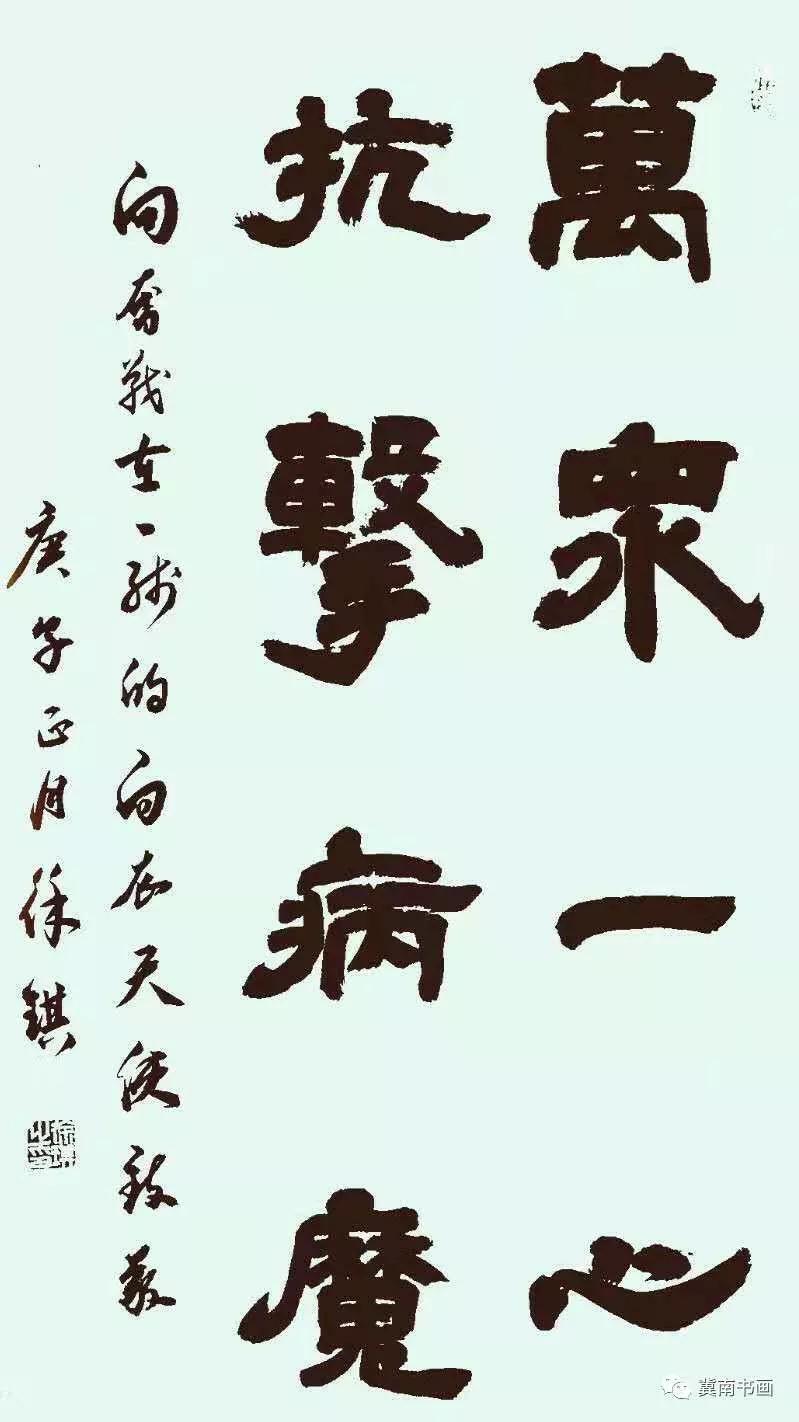 萬眾一心
抗擊病魔
向奮戰在一線的白衣天使致敬
庚子正月徐鎮
冀南书画